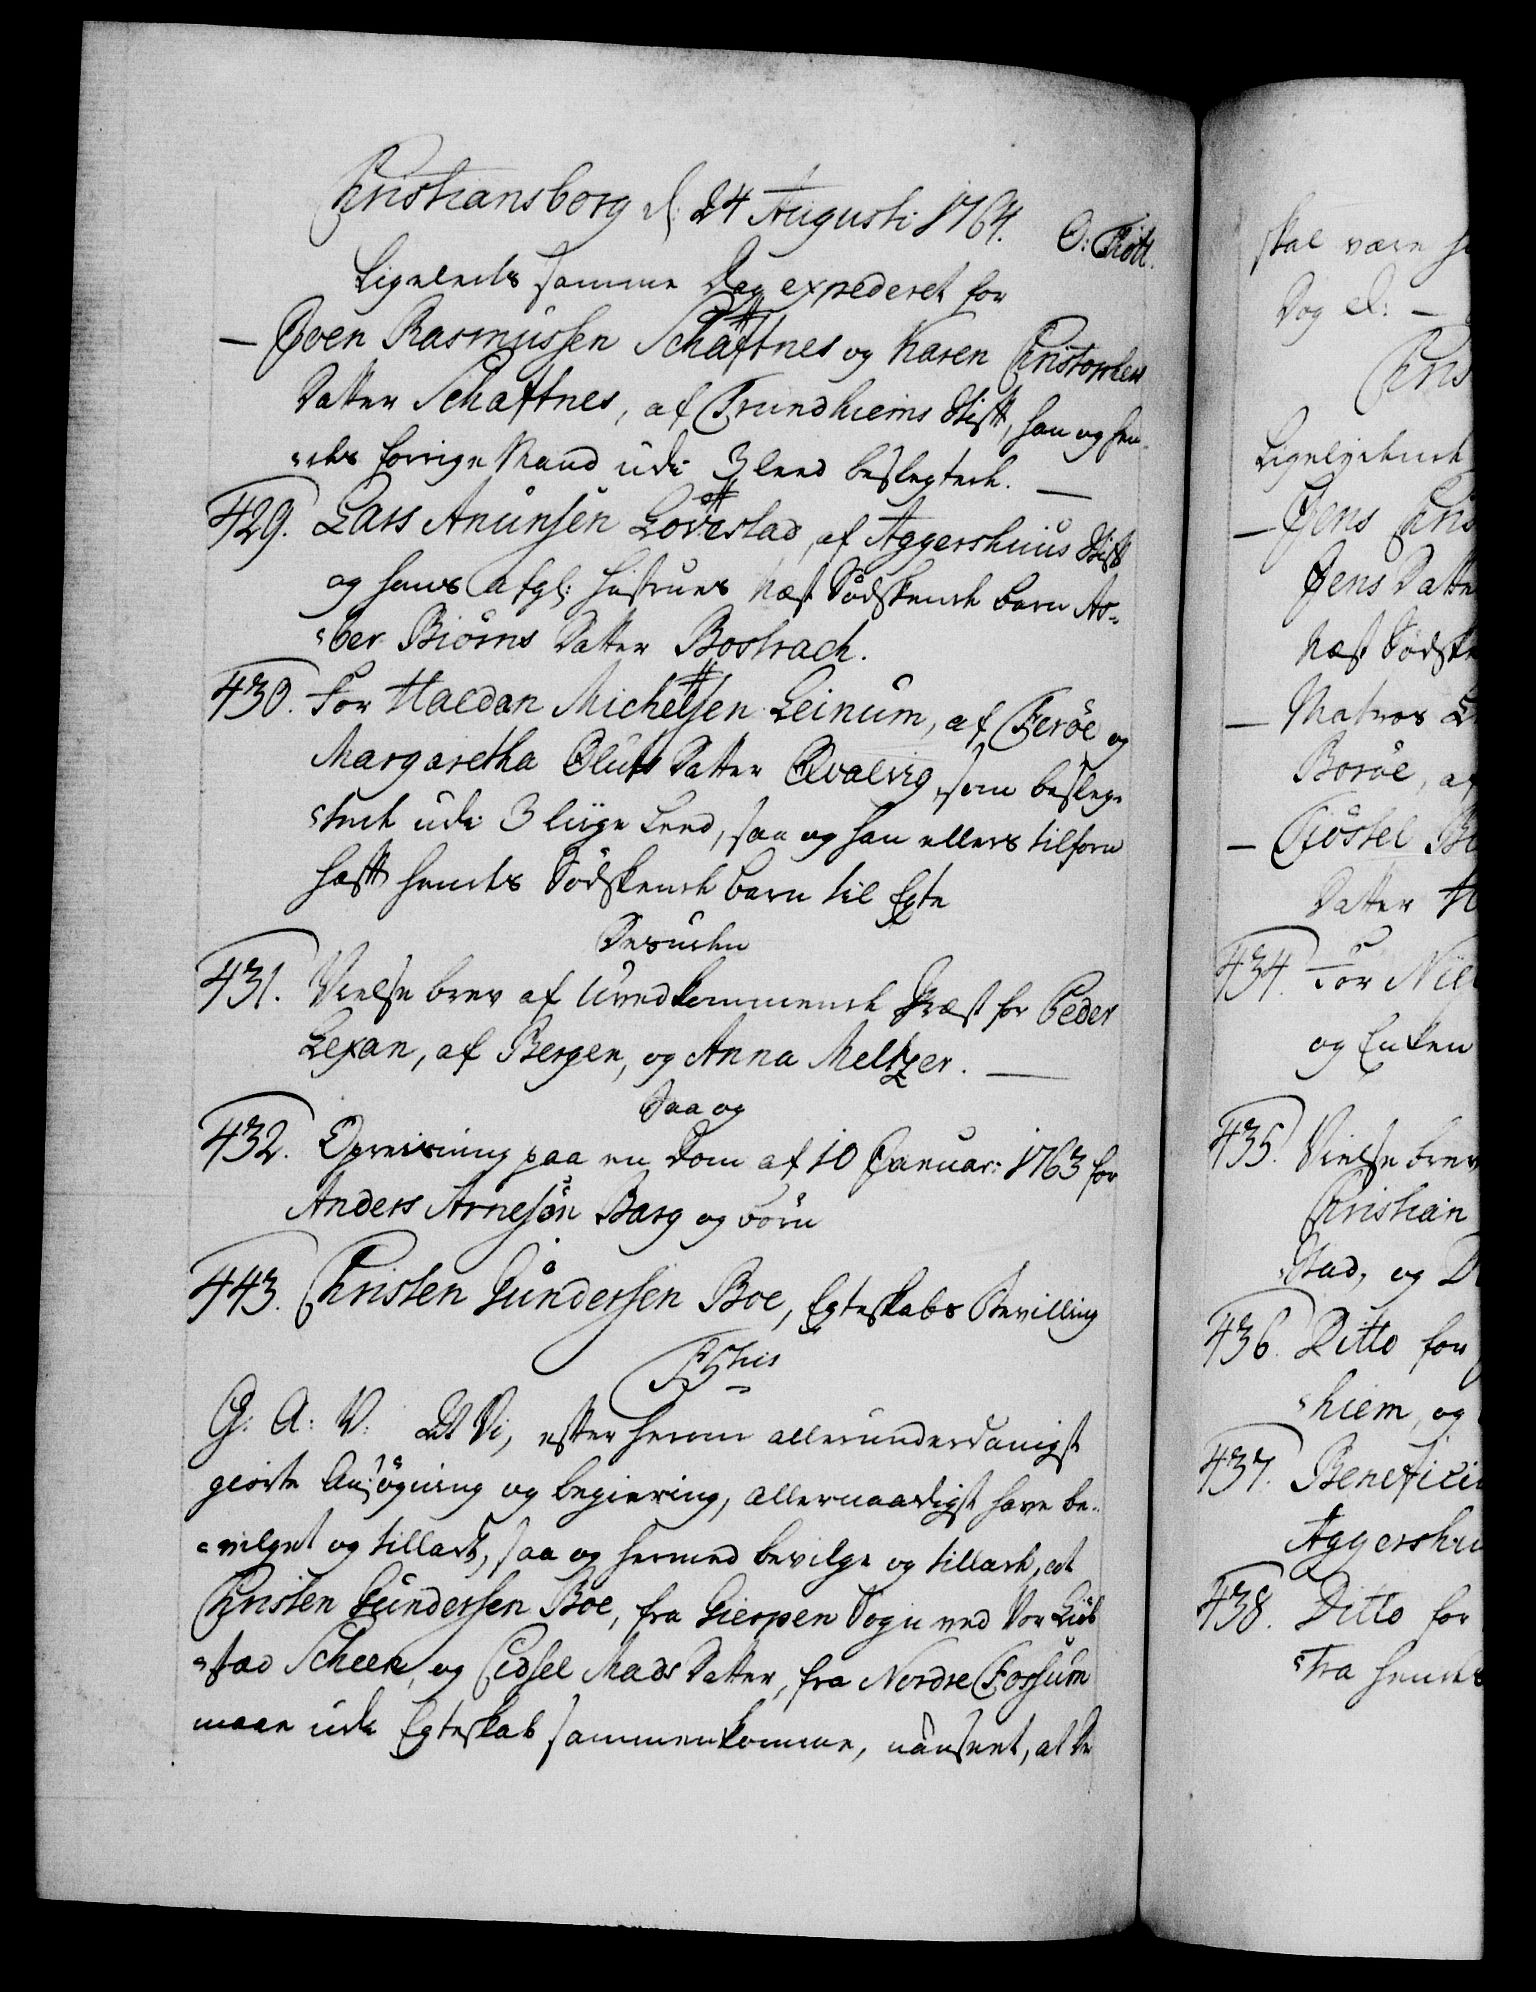 Christiansborg d: 24 Augusti 1764.
O: Thott.
Ligeleeds samme Dag expederet for
— Joen Rasmussen Schaftnes og Karen Christophers
Datter Schaftnes, af Trundhiems Stift, han og hen-
des forrige Mand udi 3 leed beslegtede. —
429. Lars Anunsen Lovestad, af Aggershuus Stift
og hans afgl: Hustrues Næst Södskende barn As-
ber Biörns Datter Bostrach.
430. For Haldan Michelsen Leinum, af Feröe og
Margaretha Olufs Datter Qvalvig, som beslegt
tede udi 3 liige Leed, saa og han ellers tilforn
haft hendes Södskende barn til Egte
Desuden
431. Vielse brev af Uvedkommende Præst for Peder
Lexan, af Bergen, og Anna Meltzer. —
Saa og
432. Opreisning paa en Dom af 10 Januar: 1763 for
Anders Arnesön Barg og börn
443. Christen Gundersen Boe, Egteskabs Bevilling
G: A: V: At Vi, efter herom allerunderdanigst
giorte Ansögning og begiering, allernaadigst have be-
vilget og tilladt, saa og hermed bevilge og tillade, at
Christen Gundersen Boe, fra Gierpen Sogn ved Vor Kiöb
stad Scheen, og Sidsel Mads Datter, fra Nordre Fossum
maae udi Egteskab sammenkomme, uanseet, at De
skal være
Dog &:
Chris
Ligelydende
— Jens Chris
Jens Datte
Næst Södske
— Matros
Boröe, af
—
Datter
434. For Niel
og Enken
435. Vielse brev
Christian
Stad, og
436. Ditto for
hiem, og
437. Beneficiu
Aggershu
438. Ditto for
fra hendes